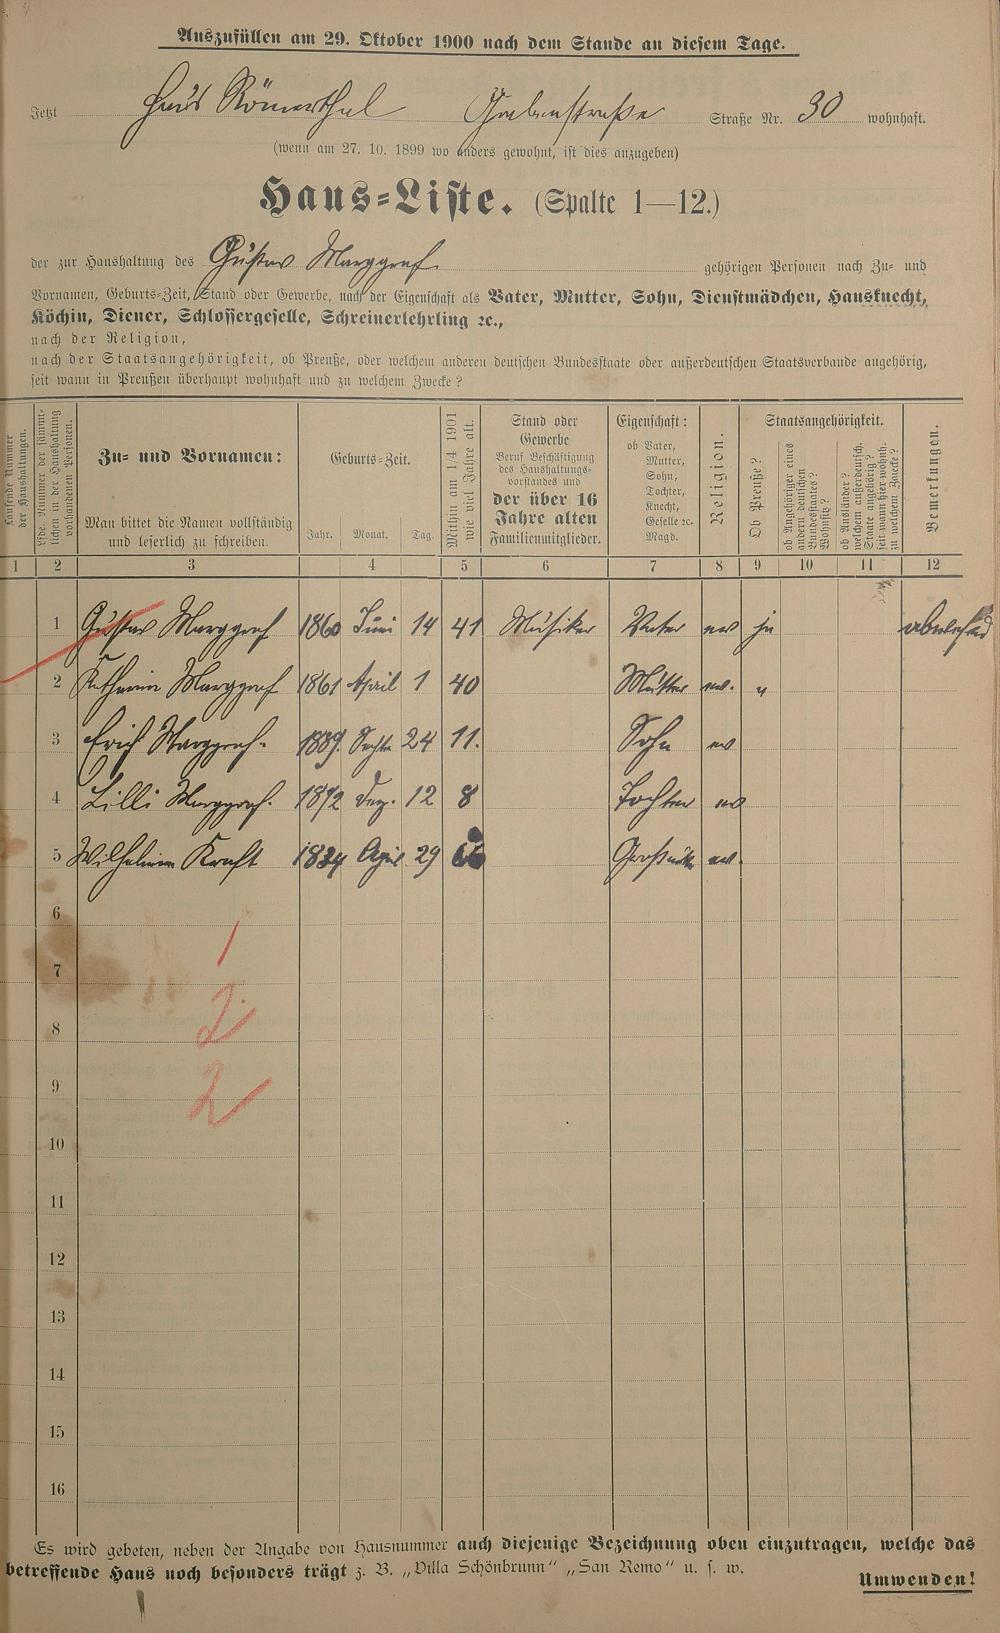 Auszufüllen am 29. Oktober 1900 nach dem Stande an diesem Tage.
Jetzt Haus Römerthal Grabenstraße Straße Nr. 30 wohnhaft.
(wenn am 27. 10. 1899 wo anders gewohnt, ist dies anzugeben)
Haus=Liste. (Spalte 1—12.)
der zur Haushaltung des Gustav Marggraf gehörigen Personen nach Zu= und
Vornamen, Geburts=Zeit, Stand oder Gewerbe, nach der Eigenschaft als Vater, Mutter, Sohn, Dienstmädchen, Hausknecht,
Köchin, Diener, Schlossergeselle, Schreinerlehrling ꝛc.,
nach der Religion,
nach der Staatsangehörigkeit, ob Preuße, oder welchem anderen deutschen Bundesstaate oder außerdeutschen Staatsverbande angehörig,
seit wann in Preußen überhaupt wohnhaft und zu welchem Zwecke?
Laufende Nummer
der Haushaltungen.
Lfde. Nummer der sämmt=
lichen in der Haushaltung
vorhandenen Personen.
Zu= und Vornamen:
Man bittet die Namen vollständig
und leserlich zu schreiben.
Geburts=Zeit.
Jahr. Monat. Tag.
Mithin am 1/4 1901
wie viel Jahre alt.
Stand oder
Gewerbe
Beruf Beschäftigung
des Haushaltungs=
vorstandes und
der über 16
Jahre alten
Familienmitglieder.
Eigenschaft:
ob Vater,
Mutter,
Sohn,
Tochter,
Knecht,
Geselle ꝛc.
Magd.
Religion.
Staatsangehörigkeit.
Ob Preuße?
ob Angehöriger eines
andern deutschen
Bundesstaates?
Wohnsitz?
ob Ausländer?
welchem außerdeutsch.
Staate angehörig?
seit wann hier wohnh.
zu welchem Zwecke?
Bemerkungen.
1 2 3 4 5 6 7 8 9 10 11 12
1 Gustav Marggraf 1860 Juni 14 41 Musiker Vater ev ja
2 Katharina Marggraf 1861 April 1 40 Mutter ev. "
3 Erich Marggraf. 1889. 24 11. Sohn ev
4 Lilli Marggraf. 1892 Dez. 12 8 Tochter ev
5 Kraft 1834 April 29 66 ev.
6
1
7
2
8
9
2
10
11
12
13
14
15
16
Es wird gebeten, neben der Angabe von Hausnummer auch diejenige Bezeichnung oben einzutragen, welche das
betreffende Haus noch besonders trägt z. B. „Villa Schönbrunn" „San Remo" u. s. w.
Umwenden!